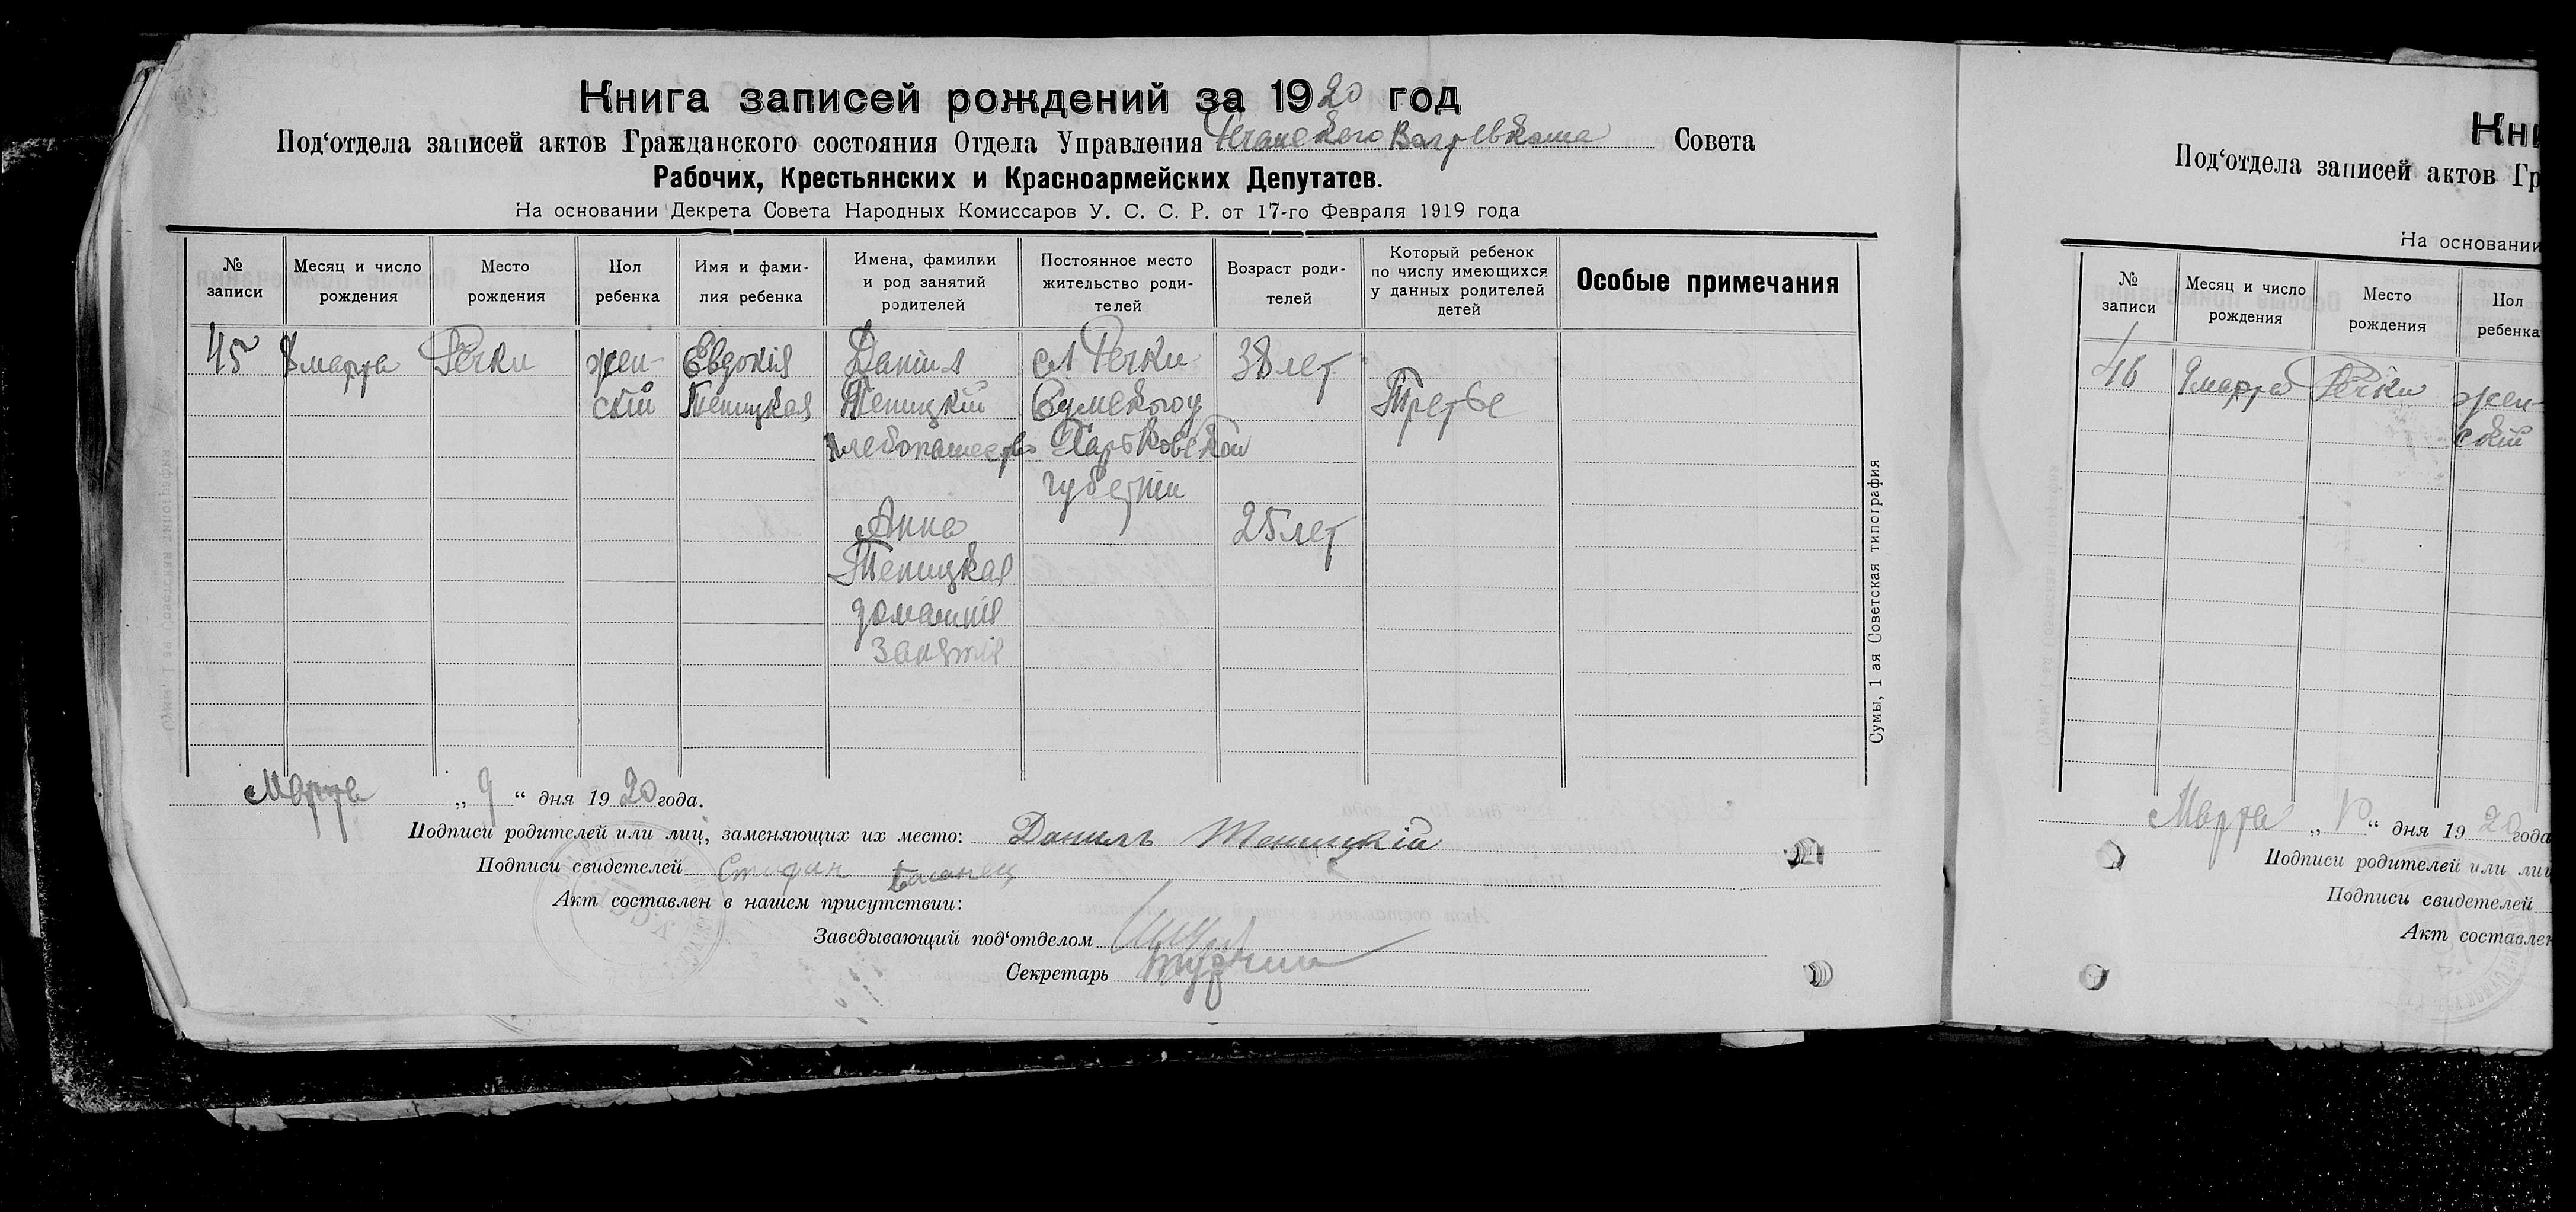 Книга записей рождений за 1920 год
Под‘отдела записей актов Гражданского состояния Отдела Управления Совета
Рабочих, Крестьянских и Красноармейских Депутатов.
На основании Декрета Совета Народных Комиссаров У. С. С. Р. от 17-го Февраля 1919 года
№ записи
Месяц и число рождения
Место рождения
Пол ребенка
Имя и фамилия ребенка
Имена, фамилии и род занятий родителей
Постоянное место жительство родителей
Возраст родителей
Который ребенок по числу имеющихся у данных родителей детей
Особые примечания
45
8 марта
Речки
жен-
скій
Евдокія
Теницкая
Даніил
Теницкій
хлебопашество
Анна
Теницкая
домашнія
занятія
сл Речки
Сумского у
Харьковской
губерніи
38 лет
25 лет
Третье
Сумы, 1 ая Советская типография
Марта „ 9 “ дня 1920 года.
Подписи родителей или лиц, заменяющих их место: Данилъ Теницкій
Подписи свидетелей Стефан
Акт составлен в нашем присутствии:
Заведывающий под‘отделом
Секретарь
Кни
Под‘отдела записей актов Гр
На основании
№ записи
Месяц и число рождения
Место рождения
Пол ребенка
46
9 марта
Речки
жен-
скій
Марта „ 10 “ дня 1920 года
Подписи родителей или лиц
Подписи свидетелей
Акт составлен